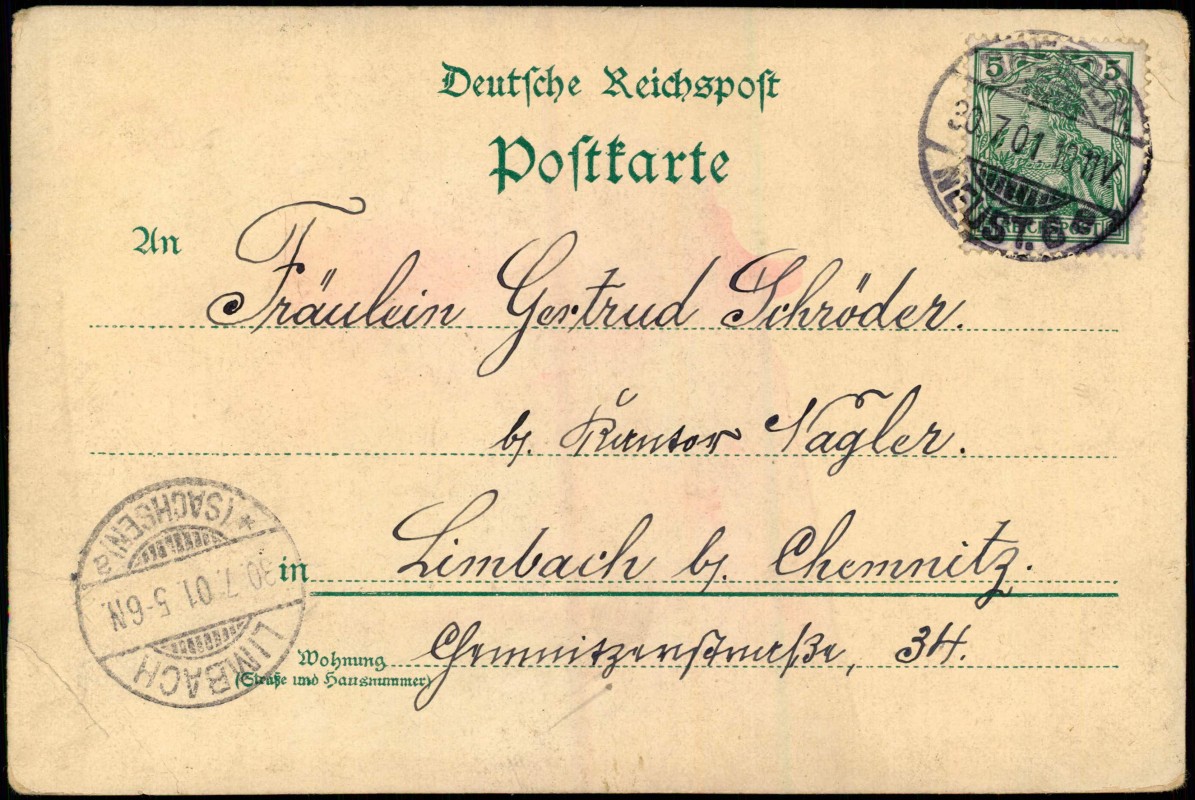 Deutsche Reichspost
Postkarte
5 5
DRESDEN
30.7.01. 10-11V
NEUST. 6 e
REICHSPOST
An Fräulein Gertrud Schröder.
b/. Kantor Nagler.
in Limbach b/. Chemnitz.
Wohnung Chemnitzerstraße, 34.
(Straße und Hausnummer)
LIMBACH
30.7.01. 5-6N.
* (SACHSEN) a